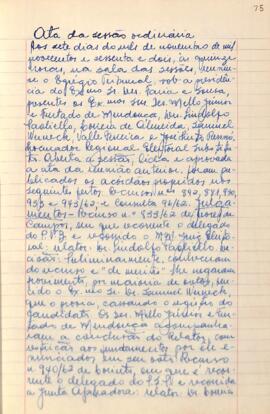 75
Ata da sessão ordinária
Aos sete dias do mês de novembro de mil
novecentos e sessenta e dois, às quinze
horas, na sala das sessões, reuniu-
se o Egrégio Tribunal, sob a presidên-
cia do Exmo Sr. Des. Faria e Sousa,
presentes os Exmos Srs. Drs. Mello Júnior
e Furtado de Mendonça, Drs. Lindolfo
Paolielo, Corrêa de Almeida, Samuel
Werneck, Valle Ferreira e
Procurador Regional Eleitoral
to. Aberta a sessão, lida e aprovada
a ata da reunião anterior, foram pu-
blicados os acórdãos proferidos nos
seguintes feitos:
953 e 943/62, e consulta 96/62. Julga-
mentos - Recurso nº 933/62 de
Campos, em que recorrente o delegado
do e recorrido o Juiz Eleito-
ral: relator: Dr. Lindolfo Paolielo
sessão. Preliminarmente, conheceram
do recurso e "de meritis" lhe negaram
provimento, por maioria de votos, ven-
cido o Exmo Sr. Dr. Samuel Werneck,
que o provia, cassando o registro do
candidato. Os Des. Mello Júnior e Fur-
tado de Mendonça acompanha-
ram a conclusão do Relator, com
restrição aos fundamentos por ele e-
nunciados em seu voto. Recurso
nº 940/62 de Corinto, em que é recor-
rente o delegado do e recorrida
a Junta Apuradora: relator: Dr.